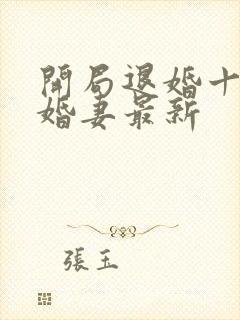 開局退婚十
婚妻最新
張玉